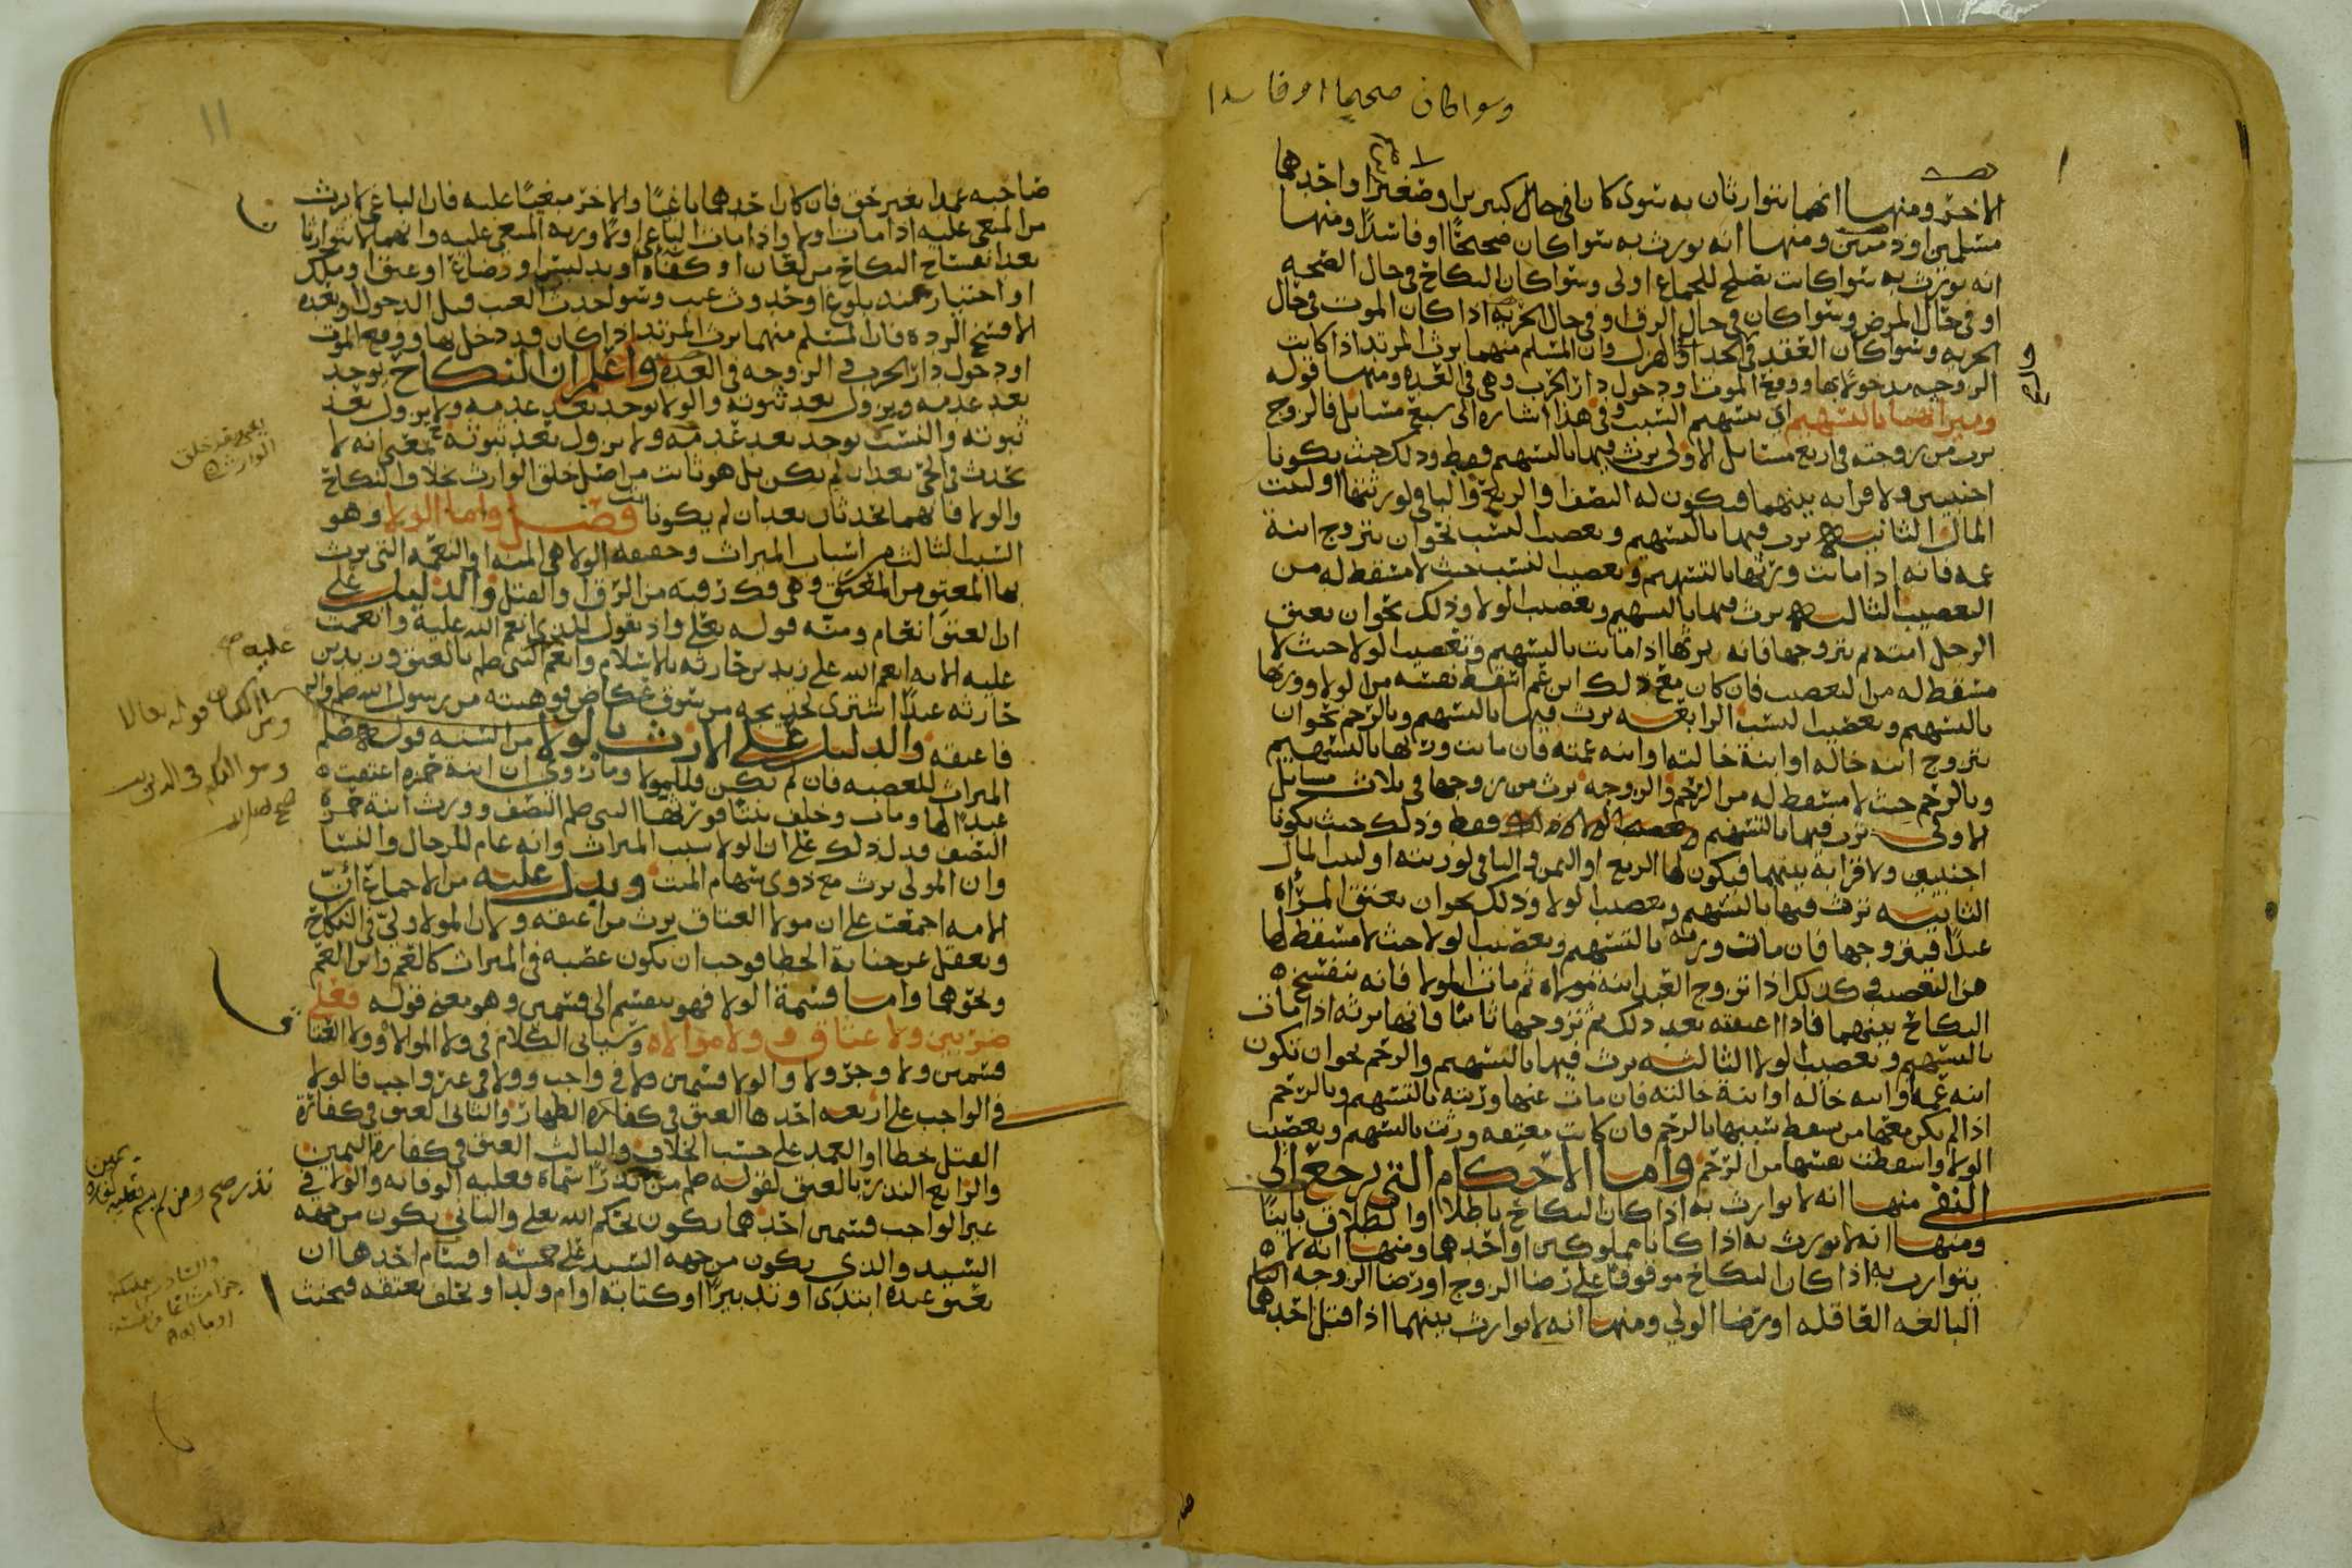 وسوا كان صحيحا او فاسدا
الاخر ومنها انهما يتوارثان به سوى كانا في حال كبيرين او صغيرين او احدهما
مسلمين او ذميين ومنها انه يورث به سوا كان صحيحًا او فاسدًا ومنها
انه يورث به سوا كانت تصلح للجماع او لى وسوا كان النكاح في حال الصحه
او في حال المرض وسوا كان في حال الرق او في حال الحريه اذا كان الموت في حال
الحريه وسوا كان العقد في الجد او الهزل وان المسلم منهما يرث المرتد اذا كانت
الزوجيه مدخولًا بها ووقع الموت او دخول دار الحرب وهي في العده ومنها قوله
وميراثهما بالتسهيم اي بتسهيم السبب وفي هذا اشاره الى سبع مسائل فالزوج
يرث من زوجته في اربع مسايل الاولى يرث فيها بالتسهيم فقط وذلك حيث يكونا
اجنبيين ولا قرابه بينهما فيكون له النصف او الربع والباقي لورثتها او لبيت
المال الثانيه يرث فيها بالتسهيم وتعصيب النسب نحو ان يتزوج ابنة
عمه فانه اذا ماتت ورثها بالتسهيم وتعصيب النسب حيث لا مسقط له من
التعصيب الثالثه يرث فيها بالتسهيم وتعصيب الولا وذلك نحو ان يعتق
الرجل امته ثم يتزوجها فانه يرثها اذا ماتت بالتسهيم وتعصيب الولا حيث لا
مسقط له من التعصيب فان كان مع ذلك ابن عم اسقط نفسه من الولا وورثها
بالتسهيم وتعصيب النسب الرابعه يرث فيها بالتسهيم وبالرحم نحو ان
يتزوج ابنه خاله او ابنة خالته او ابنه عمته فان ماتت ورثها بالتسهيم
وبالرحم حيث لا مسقط له من الرحم والزوجه ترث من زوجها في ثلاث مسايل
الاولى ترث فيها بالتسهيم فقط وذلك حيث يكونا
اجنبيين ولا قرابة بينهما فيكون لها الربع او الثمن والباقي لورثته او لبيت المال
الثانيه ترث فيها بالتسهيم وتعصيب الولا وذلك نحو ان يعتق المرأة
عبدًا فيتزوجها فان مات ورثته بالتسهيم وتعصيب الولا حيث لا مسقط لها
من التعصيب وكذلك اذا تزوج العبد ابنة مولاه ثم مات المولا فانه ينفسخ
النكاح بينهما فاذا اعتقته بعد ذلك ثم تزوجها ثانيًا فانها ترثه اذا مات
بالتسهيم وتعصيب الولا الثالثه ترث فيها بالتسهيم والرحم نحو ان تكون
ابنه عمه او ابنه خاله او ابنة خالته فان مات عنها ورثته بالتسهيم وبالرحم
اذا لم يكن معها من يسقط نسبها بالرحم فان كانت معتقه ورثت بالتسهيم وتعصيب
الولا واسقطت نفسها من الرحم واما الاحكام التي ترجع الى
النفي منها انه لا توارث به اذا كان النكاح باطلا او الطلاق باينًا
ومنها انه لا يورث به اذا كانا مملوكين او احدهما ومنها انه لا
يتوارث به اذا كان النكاح موقوفًا على رضا الزوج او رضا الزوجه
البالغه العاقله او رضا الولي ومنها انه لا توارث بينهما اذا قتل احدهما
١١
صاحبه عمدا بغير حق فان كان احدهما باغيًا والاخر مبغيًا عليه فان الباغي لا يرث
من المبغي عليه اذا مات اولا واذا مات الباغي اولًا ورثه المبغي عليه وانهما لا يتوارثا
بعد انفساخ النكاح من لعان او كفأة او تدليس او رضاع او عتق او ملك
او اختيار عند بلوغ او حدوث عيب وسوا حدث العيب قبل الدخول او بعده
الا فسخ الرده فان المسلم منهما يرث المرتد اذا كان قد دخل بها ووقع الموت
او دخول دار الحرب في الزوجه في العده واعلم ان النكاح يوجد
بعد عدمه ويزول بعد ثبوته والولا يوجد بعد عدمه ولا يزول بعد
ثبوته والنسب يوجد بعد عدمه ولا يزول بعد ثبوته بمعنى انه لا
يحدث في الحي بعد ان لم يكن بل هو ثابت من اصل خلق الوارث بخلاف النكاح
والولا فانهما يحدثان بعد ان لم يكونا فصل واما الولا وهو
السبب الثالث من اسباب الميراث وحقيقه الولا هي المنه او النعمه التي يرث
بها المعتِق من المعتَق وهي فك رقبته من الرق او القتل والدليل على
ان العتق انعام ومنه قوله تعلى واذ تقول للذي انعم الله عليه وانعمت
عليه الايه انعم الله على زيد بن حارثه بالاسلام وانعم النبي صلم بالعتق وزيد بن
حارثه عبدًا اشترى لخديجه من سوق عكاض فوهبته من رسول الله صلم
فاعتقه والدليل على الارث بالولا من السنه قوله صلم
الميراث للعصبه فان لم تكن فللمولا وما روي ان ابنة حمزه اعتقت
عبدًا لها ومات وخلف بنتًا فورثها النبي صلم النصف وورث ابنة حمزة
النصف فدل ذلك على ان الولا سبب الميراث وانه عام للرجال والنسا
وان المولى يرث مع ذوي سهام الميت ويدل عليه من الاجماع انّ
الامه اجمعت على ان مولا العتاق يرث من اعتقه ولان المولا ولي في النكاح
ويعقل عن جناية الخطا فوجب ان يكون عصبه في الميراث كالعم وابن العم
ونحوهما واما قسمة الولا فهو ينقسم الى قسمين وهو معنى قوله فعلى
ضربين ولا عتاق و ولا موالاه وسياتي الكلام في ولا الموالاه وولا العتا
قسمين ولا وجرّ ولا والولا قسمين ولا في واجب وولا في غير واجب فالولا
في الواجب على اربعه احدها العتق في كفاره الظهار والثاني العتق في كفارة
القتل خطا او العمد على حسب الخلاف والثالث العتق في كفارة اليمين
والرابع النذر بالعتق لقوله صلم من نذر نذرًا سماه فعليه الوفا به والولا في
غير الواجب قسمين احدهما يكون بحكم الله تعلى والثاني يكون من جهه
السيد والذي يكون من جهه السيد على خمسه اقسام احدها ان
يعتق عبده ابتدى او تدبيرًا او كتابه او ام ولد او يحلف بعتقه فيحنث
الوارث
عليه صح
قوله تعالى
نذر صح